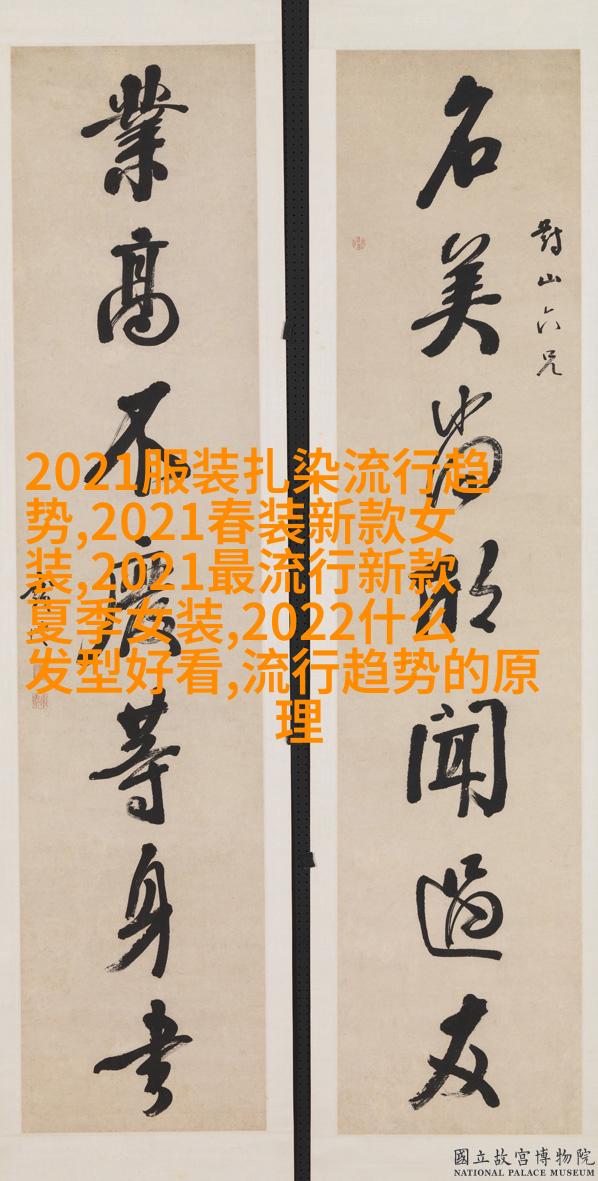 對山六兄
名美尚欣聞過友
業高不廢等身書
2021服装扎染流行趋
势,2021春装新款女
装,2021最流行新款
夏季女装,2022什么
发型好看,流行趋势的原
理
國立故宮博物院
NATIONAL PALACE MUSEUM